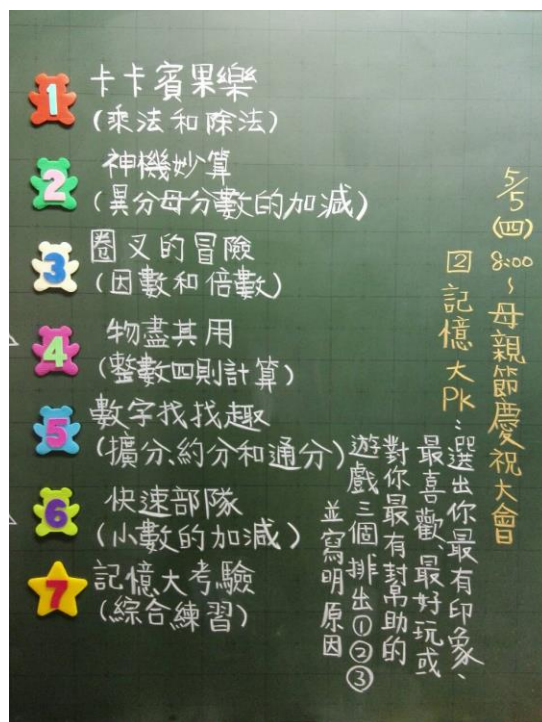 1 卡卡賓果樂
(乘法和除法)
2 神機妙算
(異分母分數的加減)
3 圈叉的冒險
(因數和倍數)
4 物盡其用
(整數四則計算)
5 數字找找趣
(擴分、約分和通分)
6 快速部隊
(小數的加減)
7 記憶大考驗
(綜合練習)
5/5(四) 8:00~母親節慶祝大會
2 記憶大PK:選出你最有印象、
最喜歡、最好玩或
對你最有封幫助的
遊戲三個排出①②③
並寫明原因